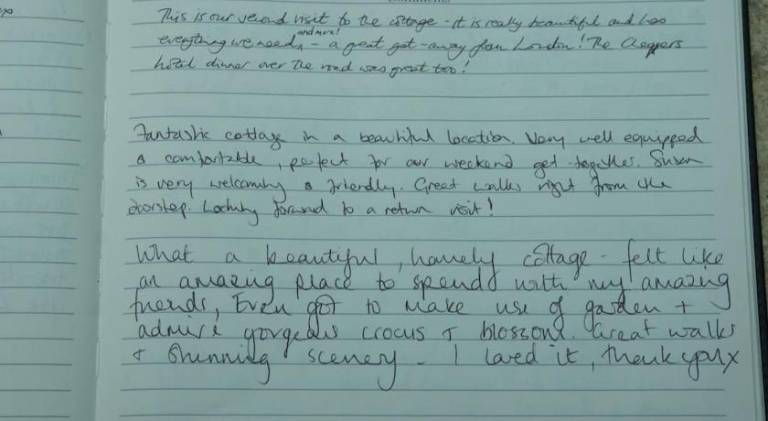 This is our second visit to the cottage - it is really beautiful and has
everything we need, and more! - a great get-away from London! The
hotel dinner over the road was great too!
Fantastic cottage in a beautiful location. Very well equipped
& comfortable, perfect for our weekend get-together. Susan
is very welcoming & friendly. Great walks right from the
doorstep. Looking forward to a return visit!
What a beautiful, homely cottage - felt like
an amazing place to spend with my amazing
friends, Even got to make use of garden +
admire gorgeous crocus + blossom. Great walks
+ Stunning scenery - I loved it, thank you x